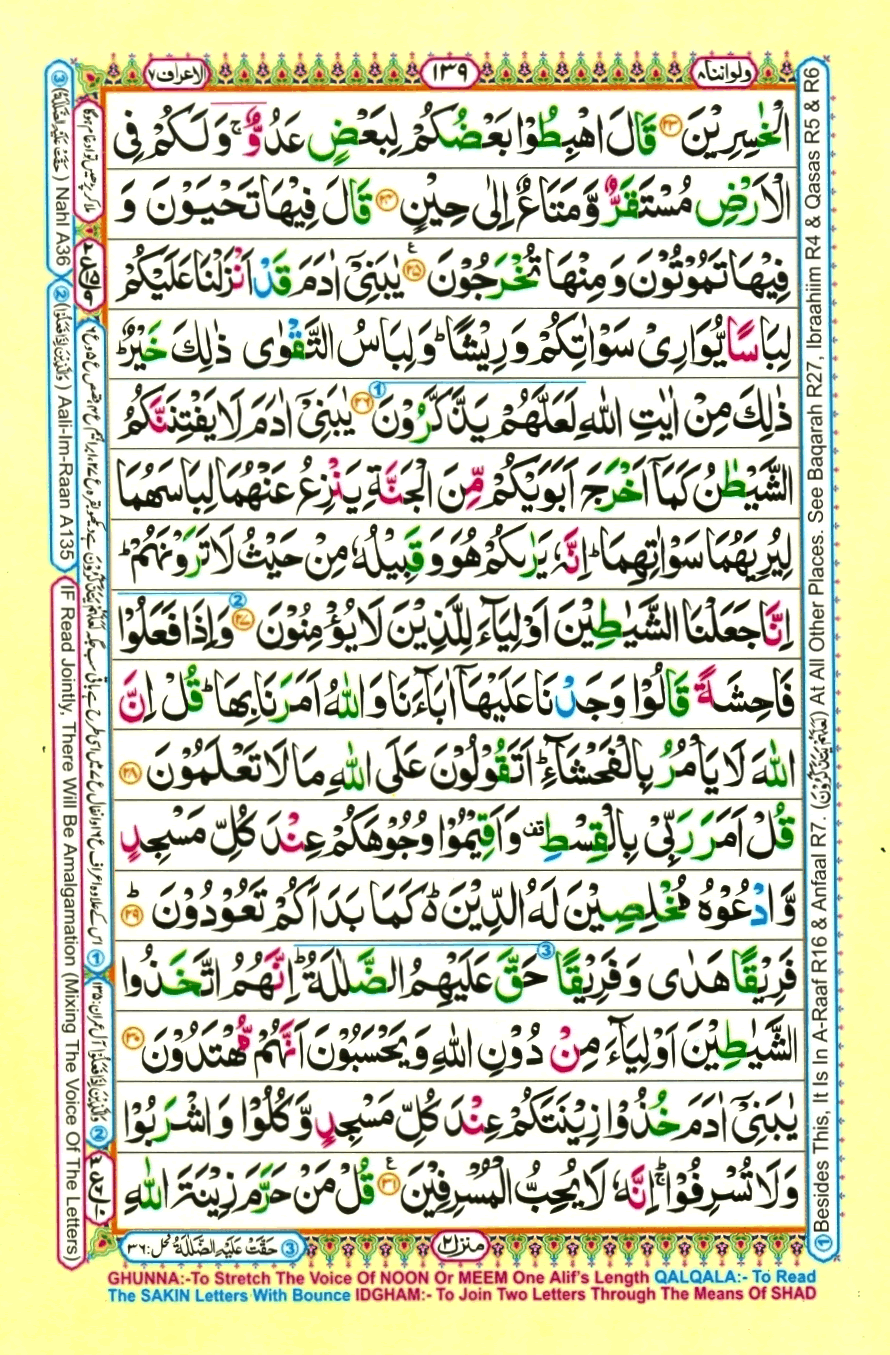 الاعراف ۷
۱۳۹
ولواننا ۸
الْخٰسِرِيْنَ ۲۳ قَالَ اهْبِطُوْا بَعْضُكُمْ لِبَعْضٍ عَدُوٌّ ۚ وَلَكُمْ فِى
الْاَرْضِ مُسْتَقَرٌّ وَّمَتَاعٌ اِلٰى حِيْنٍ ۲۴ قَالَ فِيْهَا تَحْيَوْنَ وَ
فِيْهَا تَمُوْتُوْنَ وَمِنْهَا تُخْرَجُوْنَ ۲۵ يٰبَنِىْٓ اٰدَمَ قَدْ اَنْزَلْنَا عَلَيْكُمْ
لِبَاسًا يُّوَارِىْ سَوْاٰتِكُمْ وَرِيْشًا ؕ وَلِبَاسُ التَّقْوٰى ذٰلِكَ خَيْرٌ ؕ
ذٰلِكَ مِنْ اٰيٰتِ اللّٰهِ لَعَلَّهُمْ يَذَّكَّرُوْنَ ۲۶ يٰبَنِىْٓ اٰدَمَ لَا يَفْتِنَنَّكُمُ
الشَّيْطٰنُ كَمَآ اَخْرَجَ اَبَوَيْكُمْ مِّنَ الْجَنَّةِ يَنْزِعُ عَنْهُمَا لِبَاسَهُمَا
لِيُرِيَهُمَا سَوْاٰتِهِمَا ؕ اِنَّهٗ يَرٰىكُمْ هُوَ وَقَبِيْلُهٗ مِنْ حَيْثُ لَا تَرَوْنَهُمْ ؕ
اِنَّا جَعَلْنَا الشَّيٰطِيْنَ اَوْلِيَآءَ لِلَّذِيْنَ لَا يُؤْمِنُوْنَ ۲۷ وَاِذَا فَعَلُوْا
فَاحِشَةً قَالُوْا وَجَدْنَا عَلَيْهَآ اٰبَآءَنَا وَاللّٰهُ اَمَرَنَا بِهَا ؕ قُلْ اِنَّ
اللّٰهَ لَا يَاْمُرُ بِالْفَحْشَآءِ ؕ اَتَقُوْلُوْنَ عَلَى اللّٰهِ مَا لَا تَعْلَمُوْنَ ۲۸
قُلْ اَمَرَ رَبِّىْ بِالْقِسْطِ وَاَقِيْمُوْا وُجُوْهَكُمْ عِنْدَ كُلِّ مَسْجِدٍ
وَّادْعُوْهُ مُخْلِصِيْنَ لَهُ الدِّيْنَ ؕ كَمَا بَدَاَكُمْ تَعُوْدُوْنَ ۲۹
فَرِيْقًا هَدٰى وَفَرِيْقًا حَقَّ عَلَيْهِمُ الضَّلٰلَةُ ؕ اِنَّهُمُ اتَّخَذُوا
الشَّيٰطِيْنَ اَوْلِيَآءَ مِنْ دُوْنِ اللّٰهِ وَيَحْسَبُوْنَ اَنَّهُمْ مُّهْتَدُوْنَ ۳۰
يٰبَنِىْٓ اٰدَمَ خُذُوْا زِيْنَتَكُمْ عِنْدَ كُلِّ مَسْجِدٍ وَّكُلُوْا وَاشْرَبُوْا
وَلَا تُسْرِفُوْا ۚ اِنَّهٗ لَا يُحِبُّ الْمُسْرِفِيْنَ ۳۱ قُلْ مَنْ حَرَّمَ زِيْنَةَ اللّٰهِ
③ حَقَّتْ عَلَيْهِ الضَّلٰلَةُ نحل: ۳۶
منزل ۲
① Besides This, It Is In A-Raaf R16 & Anfaal R7. (لَعَلَّهُمْ يَذَّكَّرُوْنَ) At All Other Places. See Baqarah R27, Ibraahiim R4 & Qasas R5 & R6
③ (حَقَّتْ عَلَيْهِ الضَّلٰلَةُ) Nahl A36
② (وَالَّذِيْنَ اِذَا فَعَلُوْا) Aali-Im-Raan A135
IF Read Jointly, There Will Be Amalgamation (Mixing The Voice Of The Letters)
② وَالَّذِيْنَ اِذَا فَعَلُوْا آل عمران: ۱۳۵
GHUNNA:-To Stretch The Voice Of NOON Or MEEM One Alif's Length QALQALA:- To Read
The SAKIN Letters With Bounce IDGHAM:- To Join Two Letters Through The Means Of SHAD